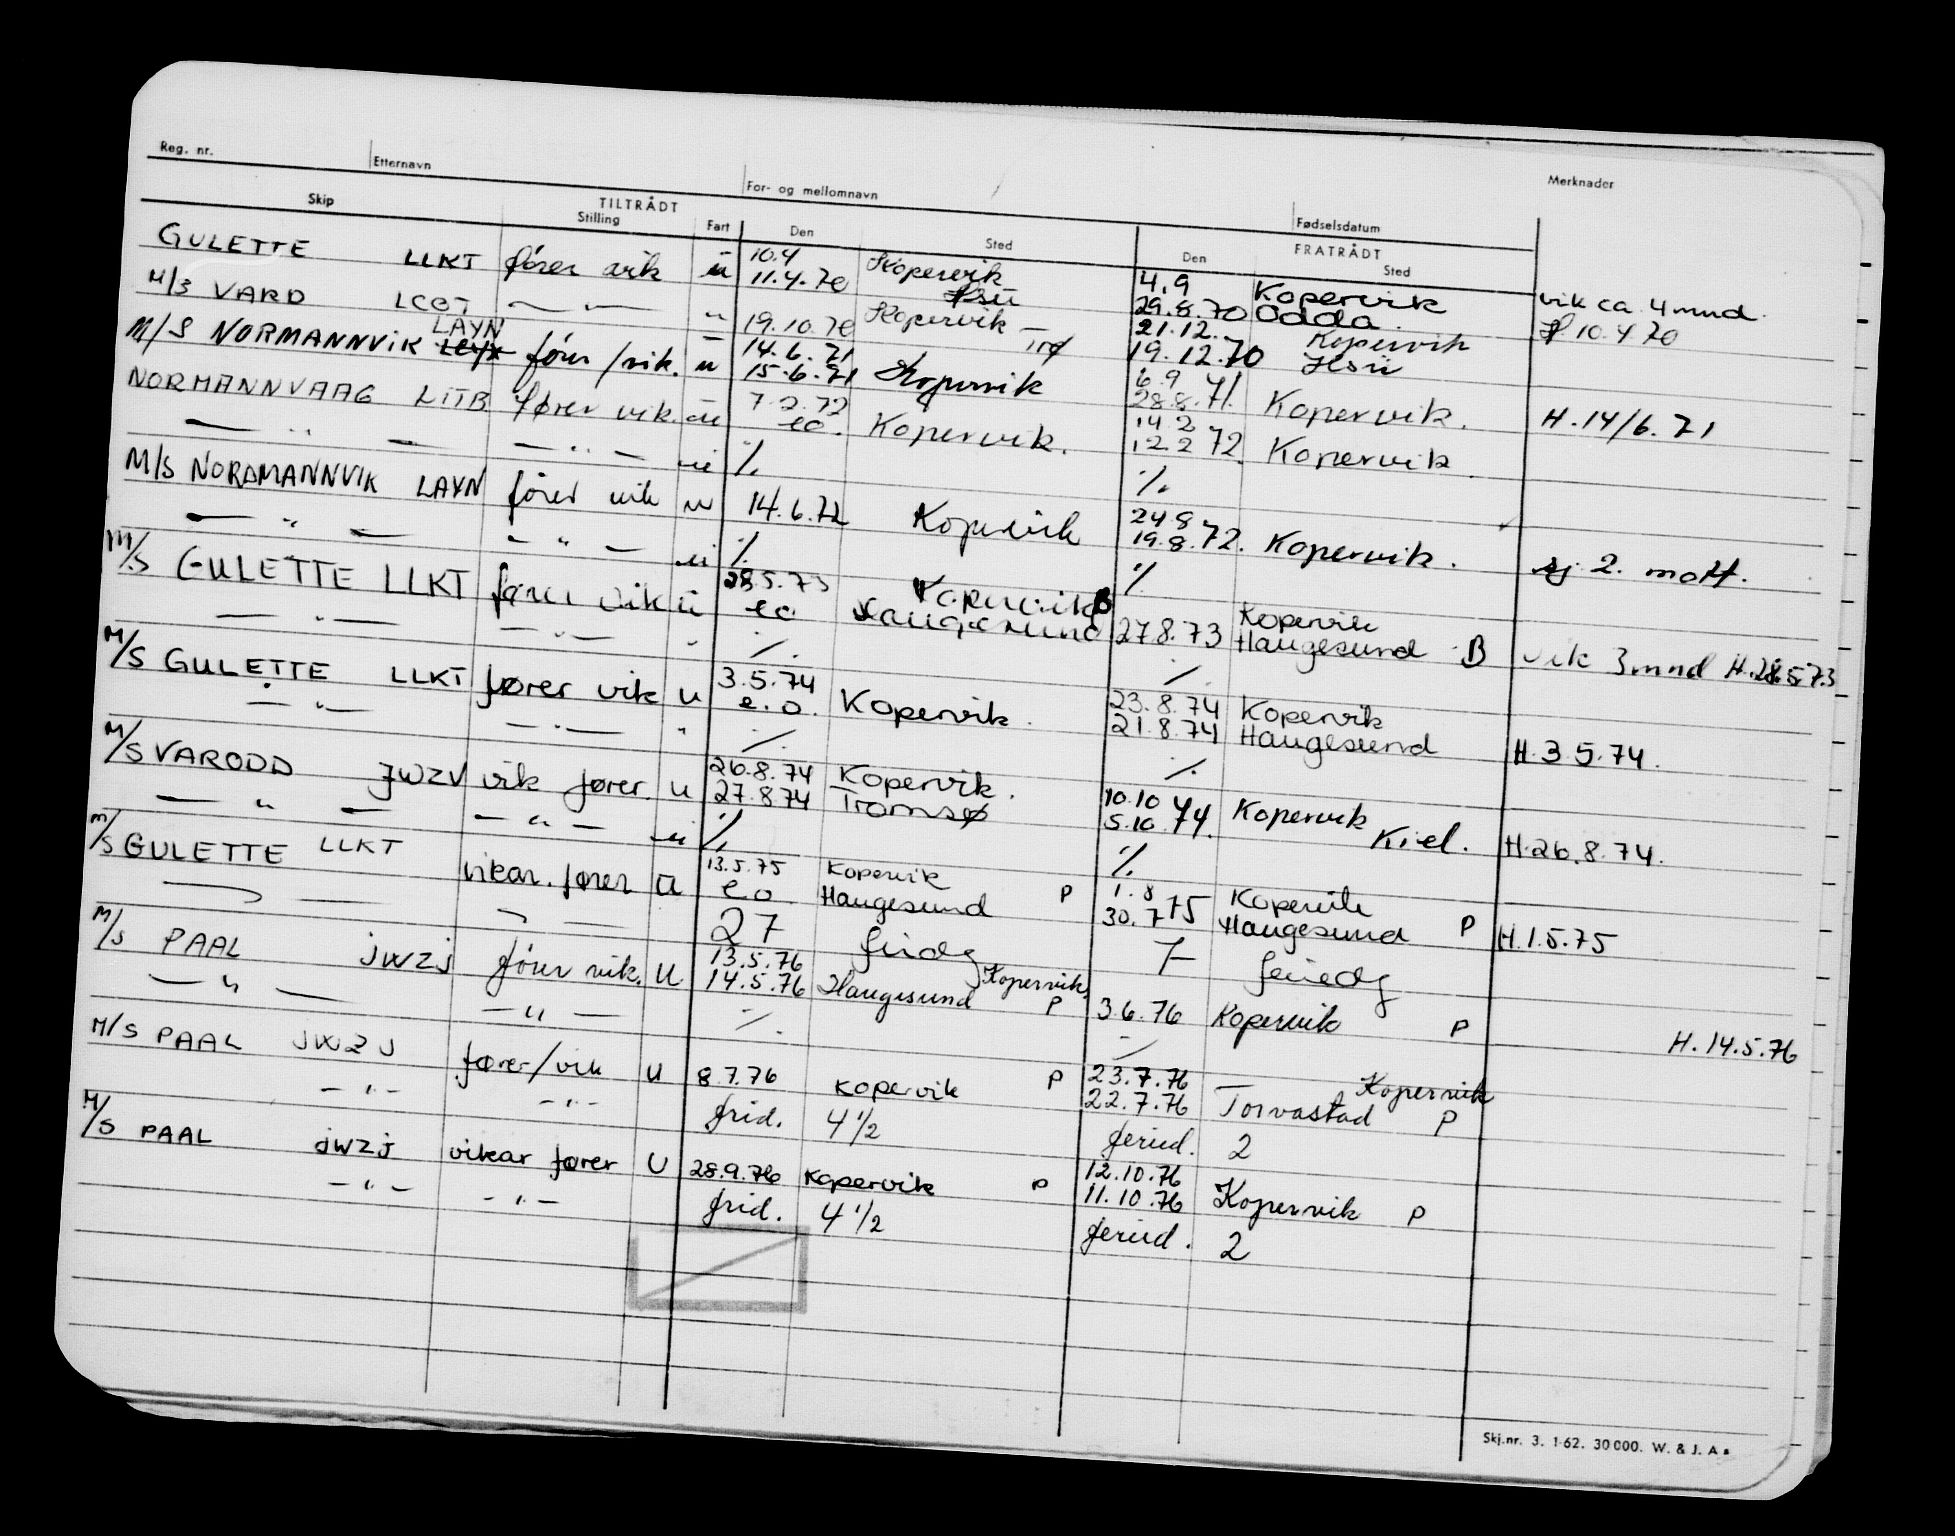 Reg. nr. Etternavn For- og mellomnavn Fødselsdatum Merknader
Skip TILTRÅDT Stilling Fart Den Sted FRATRÅDT Den Sted
GULETTE LLKT fører vik u 10.4 11.4.70 Kopervik 4.9 29.8.70 Kopervik Odda. vik ca. 4 mnd.
M/S VARD LCOT — " — " 19.10.70 Kopervik 21.12. 19.12.70 Kopervik 10.4.70
M/S NORMANNVIK LAYN fører/vik. u 14.6.71 15.6.71 Kopervik 6.9 28.8.71. Kopervik. H.14/6.71
NORMANNVAAG LITB fører vik. u 7.2.72 eo. Kopervik. 14.2 12.2 72. Kopervik.
— " — — " — u ⁒ ⁒
M/S NORDMANNVIK LAYN fører vik u 14.6.72 Kopervik 24.8 19.8.72. Kopervik. 2. mott.
— " — — " — u ⁒ ⁒
M/S GULETTE LLKT fører vik u 28.5.73 eo Kopervik Haugesund B 27.8.73 Kopervik Haugesund B vik 3 mnd H.28.5.73
— " — — " — " ⁒ ⁒
M/S GULETTE LLKT fører vik u 3.5.74 e.o. Kopervik. 23.8.74 21.8.74 Kopervik Haugesund H.3.5.74.
— " — — " — " ⁒ ⁒
M/S VARODD JWZV vik fører. u 26.8.74 27.8.74 Kopervik. Tromsø 10.10 5.10 74. Kopervik Kiel. H.26.8.74.
— " — — " — u ⁒ ⁒
M/S GULETTE LLKT vikar. fører u 13.5.75 eo. Kopervik Haugesund P 1.8 30.7 75 Kopervik Haugesund P H.1.5.75
27 7
M/S PAAL JWZJ fører vik. u 13.5.76 14.5.76 Haugesund Kopervik. P 3.6.76 Kopervik P H.14.5.76
— " — — " — ⁒ ⁒
M/S PAAL JWZJ fører/vik u 8.7.76 Kopervik P 23.7.76 22.7.76 Torvastad Kopervik P
— " — — " — frid. 4 1/2 feried. 2
M/S PAAL JWZJ vikar fører U 28.9.76 Kopervik P 12.10.76 11.10.76 Kopervik P
— " — — " — frid. 4 1/2 feried. 2
Skj.nr. 3. 1-62. 30000. W. & J. A.s